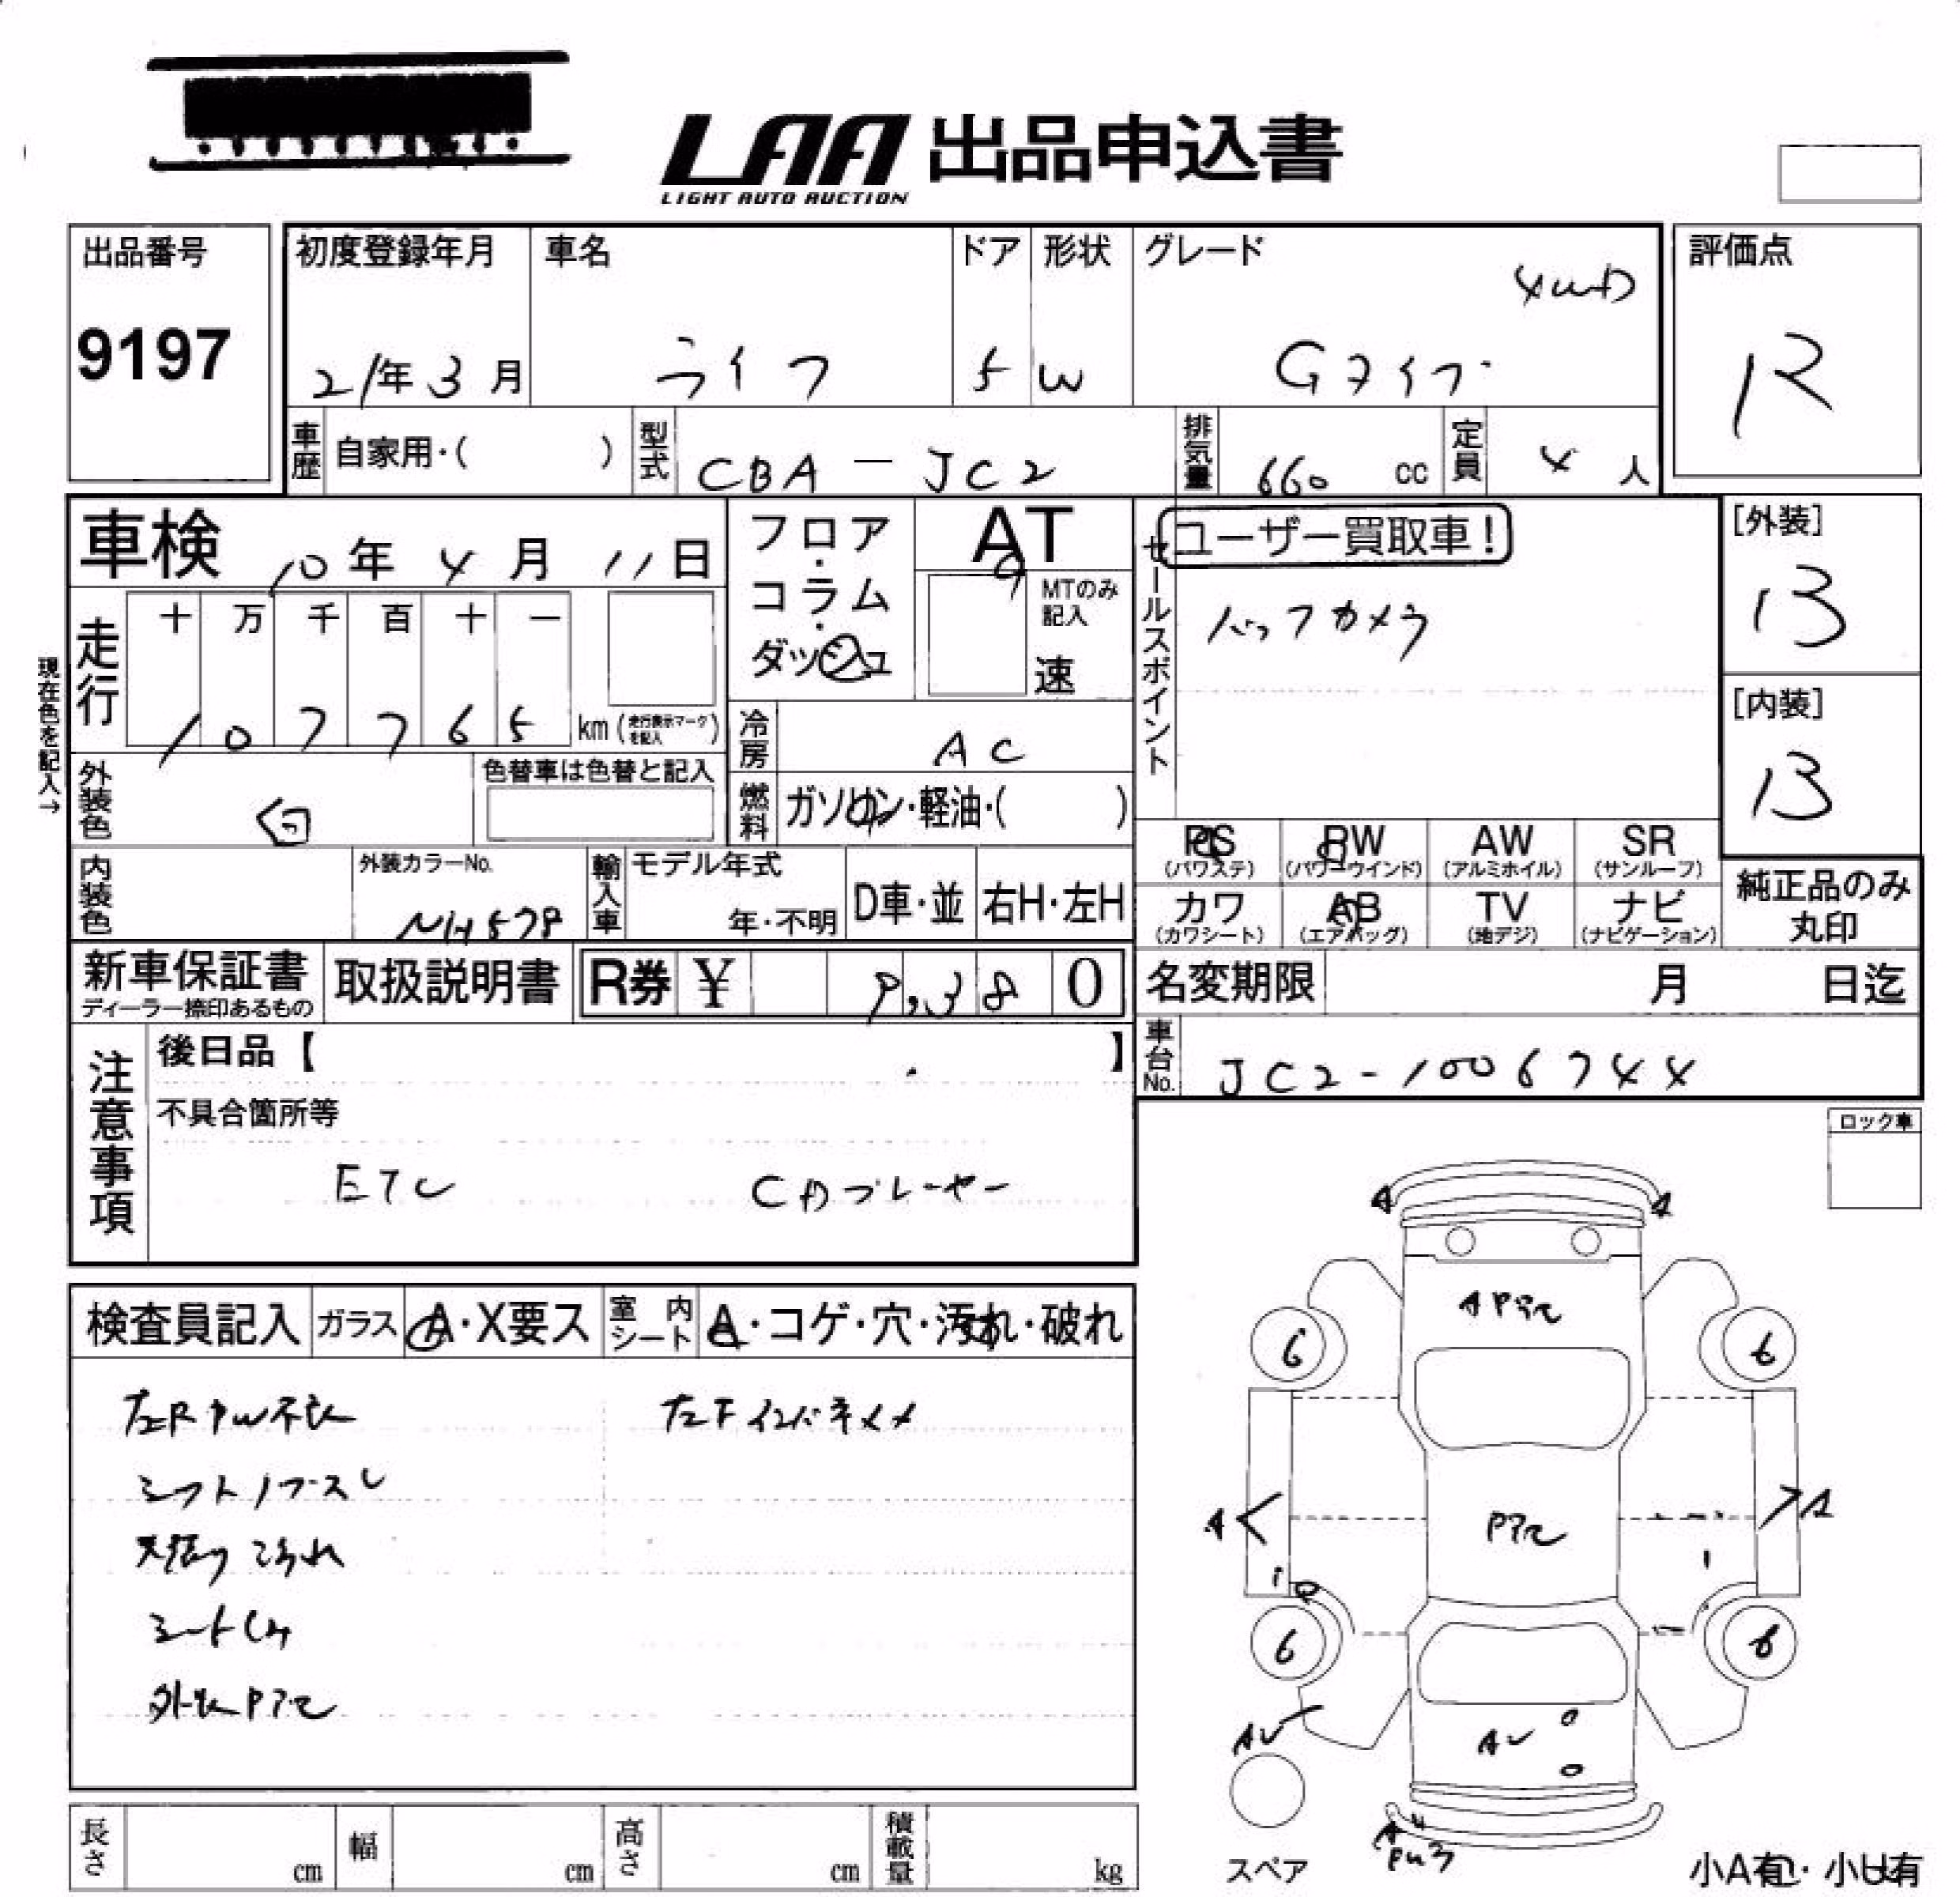 LAA 出品申込書
LIGHT AUTO AUCTION
出品番号
9197
初度登録年月
21年 3月
車名
ライフ
ドア
5
形状
W
グレード
4WD
Gタイプ
評価点
R
車歴
自家用・( )
型式
CBA - JC2
排気量
660 cc
定員
4 人
車検 10年 4月 11日
フロア・コラム・ダッシュ
AT
MTのみ記入
速
セールスポイント
ユーザー買取車!
バックカメラ
[外装]
B
[内装]
B
現在色を記入→
走行
十 万 千 百 十 一
1 0 7 7 6 5 km (走行表示マークを記入)
冷房
AC
外装色
色替車は色替と記入
燃料
ガソリン・軽油・( )
PS (パワステ)
PW (パワーウインド)
AW (アルミホイル)
SR (サンルーフ)
カワ (カワシート)
AB (エアバッグ)
TV (地デジ)
ナビ (ナビゲーション)
純正品のみ丸印
内装色
外装カラーNo.
NH578
輸入車
モデル年式
年・不明
D車・並
右H・左H
新車保証書
ディーラー捺印あるもの
取扱説明書
R券 ¥ 9,380
名変期限 月 日迄
車台No.
JC2-1006744
注意事項
後日品【 】
不具合箇所等
ETC CDプレーヤー
ロック車
検査員記入
ガラス
A・X要ス
室内シート
A・コゲ・穴・汚れ・破れ
左R PW不良
シフトノブスレ
天張りよごれ
シートしみ
左Fインパネメメ
A
A
6
6
A
A
6
6
AU
AU
A
スペア
小A有・小U有
長さ cm
幅 cm
高さ cm
積載量 kg